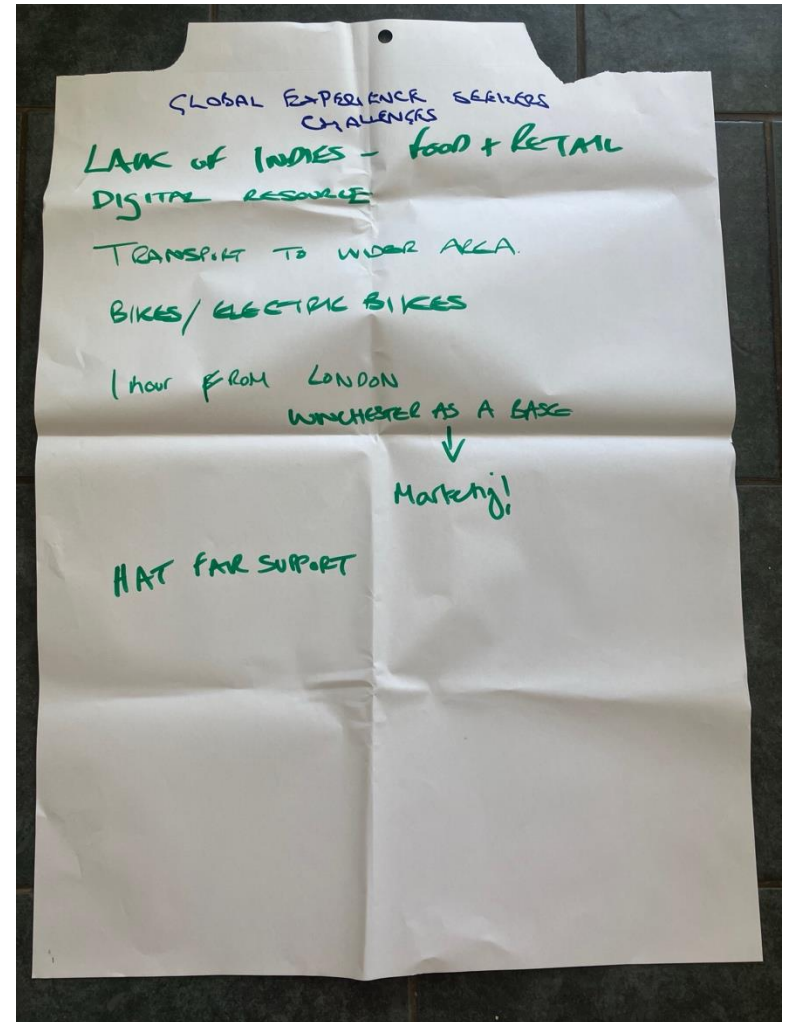 GLOBAL EXPERIENCE SEEKERS
CHALLENGES
LACK OF INDIES - FOOD + RETAIL
DIGITAL RESOURCE
TRANSPORT TO WIDER AREA.
BIKES/ELECTRIC BIKES
1 hour FROM LONDON
WINCHESTER AS A BASE
↓
Marketing!
HAT FAIR SUPPORT